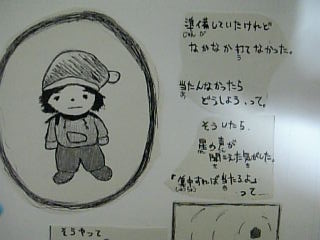 準備していたけれど
じゅんび
なかなか打てなかった。
う
当たんなかったら
あ
どうしよう、って。
そうしたら、
星の声が
聞こえた気がした。
「集中すれば当たるよ」
って…
そうやって